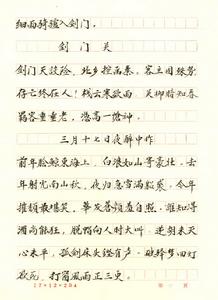 细雨骑驴入剑门。
剑门关
剑门天设险，北乡控函秦。客主固殊势，
存亡终在人！栈云寒欲雨，关柳暗知春。
羁客垂垂老，凭高一怆神。
三月十七日夜醉中作
前年脍鲸东海上，白浪如山寄豪壮。去
年射虎南山秋，夜归急雪满貂裘。今年
摧颓最堪笑，华发苍颜羞自照。谁知得
酒尚能狂，脱帽向人时大叫。逆胡未灭
心未平，孤剑床头铿有声。破驿梦回灯
欲死，打窗风雨正三更。
17×12=204 第 页